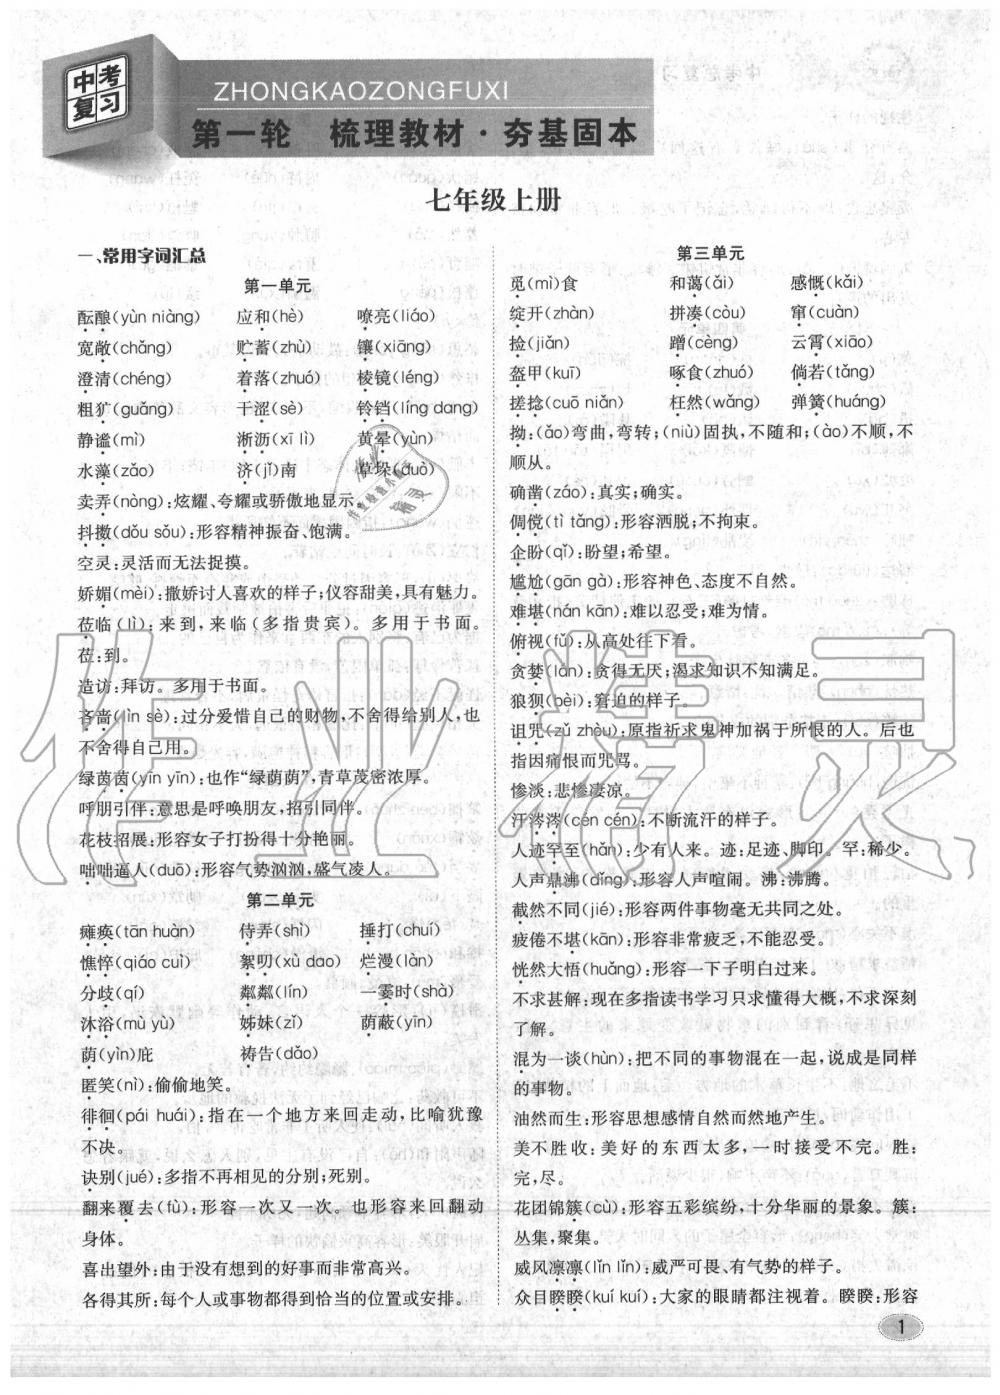 中考
复习
ZHONGKAOZONGFUXI
第一轮 梳理教材·夯基固本
七年级上册
一、常用字词汇总
第一单元
酝酿(yùn niàng) 应和(hè) 嘹亮(liáo)
宽敞(chǎng) 贮蓄(zhù) 镶(xiāng)
澄清(chéng) 着落(zhuó) 棱镜(léng)
粗犷(guǎng) 干涩(sè) 铃铛(líng dang)
静谧(mì) 淅沥(xī lì) 黄晕(yùn)
水藻(zǎo) 济(jǐ)南 草垛(duò)
卖弄(nòng):炫耀、夸耀或骄傲地显示。
抖擞(dǒu sǒu):形容精神振奋、饱满。
空灵:灵活而无法捉摸。
娇媚(mèi):撒娇讨人喜欢的样子;仪容甜美,具有魅力。
莅临(lì):来到,来临(多指贵宾)。多用于书面。
莅:到。
造访:拜访。多用于书面。
吝啬(lìn sè):过分爱惜自己的财物,不舍得给别人,也
不舍得自己用。
绿茵茵(yīn yīn):也作“绿荫荫”,青草茂密浓厚。
呼朋引伴:意思是呼唤朋友,招引同伴。
花枝招展:形容女子打扮得十分艳丽。
咄咄逼人(duō):形容气势汹汹,盛气凌人。
第二单元
瘫痪(tān huàn) 侍弄(shì) 捶打(chuí)
憔悴(qiáo cuì) 絮叨(xù dao) 烂漫(làn)
分歧(qí) 粼粼(lín) 一霎时(shà)
沐浴(mù yù) 姊妹(zǐ) 荫蔽(yīn)
荫(yìn)庇 祷告(dǎo)
匿笑(nì):偷偷地笑。
徘徊(pái huái):指在一个地方来回走动,比喻犹豫
不决。
诀别(jué):多指不再相见的分别;死别。
翻来覆去(fù):形容一次又一次。也形容来回翻动
身体。
喜出望外:由于没有想到的好事而非常高兴。
各得其所:每个人或事物都得到恰当的位置或安排。
第三单元
觅(mì)食 和蔼(ǎi) 感慨(kǎi)
绽开(zhàn) 拼凑(còu) 窜(cuàn)
捡(jiǎn) 蹭(cèng) 云霄(xiāo)
盔甲(kuī) 啄食(zhuó) 倘若(tǎng)
搓捻(cuō niǎn) 枉然(wǎng) 弹簧(huáng)
拗:(ǎo)弯曲,弯转;(niù)固执,不随和;(ào)不顺,不
顺从。
确凿(záo):真实;确实。
倜傥(tì tǎng):形容洒脱;不拘束。
企盼(qǐ):盼望;希望。
尴尬(gān gà):形容神色、态度不自然。
难堪(nán kān):难以忍受;难为情。
俯视(fǔ):从高处往下看。
贪婪(lán):贪得无厌;渴求知识不知满足。
狼狈(bèi):窘迫的样子。
诅咒(zǔ zhòu):原指祈求鬼神加祸于所恨的人。后也
指因痛恨而咒骂。
惨淡:悲惨凄凉。
汗涔涔(cén cén):不断流汗的样子。
人迹罕至(hǎn):少有人来。迹:足迹、脚印。罕:稀少。
人声鼎沸(dǐng):形容人声喧闹。沸:沸腾。
截然不同(jié):形容两件事物毫无共同之处。
疲倦不堪(kān):形容非常疲乏,不能忍受。
恍然大悟(huǎng):形容一下子明白过来。
不求甚解:现在多指读书学习只求懂得大概,不求深刻
了解。
混为一谈(hùn):把不同的事物混在一起,说成是同样
的事物。
油然而生:形容思想感情自然而然地产生。
美不胜收:美好的东西太多,一时接受不完。胜:
完,尽。
花团锦簇(cù):形容五彩缤纷,十分华丽的景象。簇:
丛集,聚集。
威风凛凛(lǐn lǐn):威严可畏、有气势的样子。
众目睽睽(kuí kuí):大家的眼睛都注视着。睽睽:形容
1
作业精灵